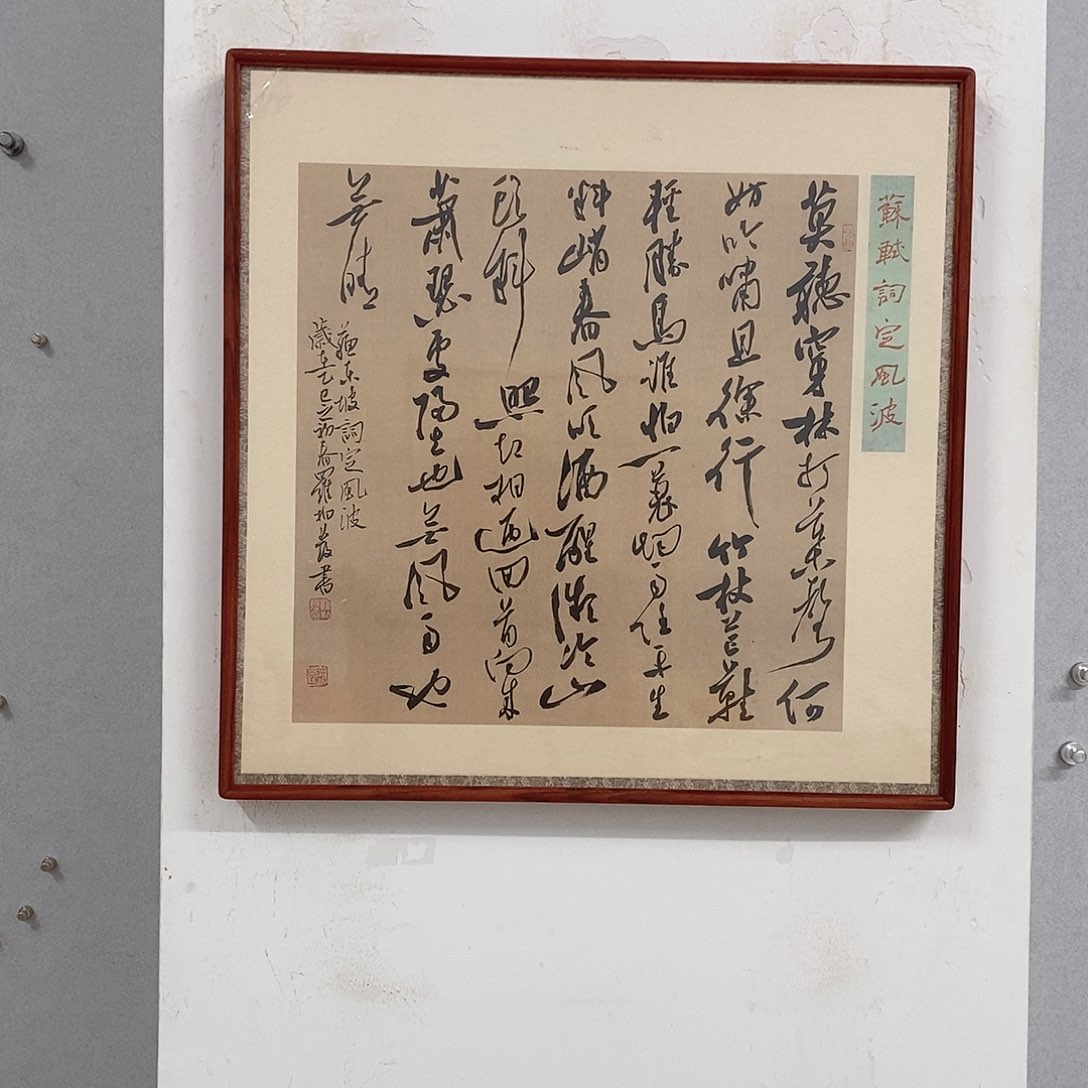 蘇軾詞定風波
莫聽穿林打葉聲何
妨吟嘯且徐行竹杖芒鞋
輕勝馬誰怕一蓑烟雨任平生
料峭春風吹酒醒微冷山
頭斜照却相迎回首向来
蕭瑟處歸去也無風雨也
無晴
蘇東坡詞定風波
歲在乙巳初春羅書